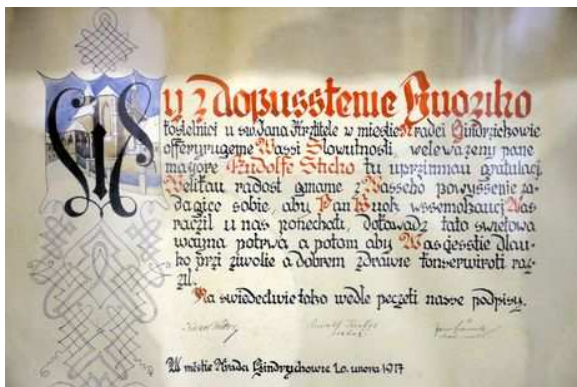 My z dopusstenie Buoziho
tosielnici u sw. Jana Krztitele w miestie Hradci Gindrzichowie
offeryrugeme Wassi Slowutnosti, weleważeny pane
mayore Rudolfe Sticho tu uprzimnau gratulaci.
Welikau radost gmame z Wasseho powyssenie za-
dagice sobie, aby Pan Buoh wssemohauci Was
raczil u nas ponechati, dokawadz tato swietowa
wayna potrwa, a potom aby Was gesstie dlau-
ho przi ziwobie a dobrem zdrawie konserwiroti racz-
zil.
Na swiedectwie toho wedle peczeti nasse podpisy.
W miestie Hradci Gindrychowie 1.o. unora 1917